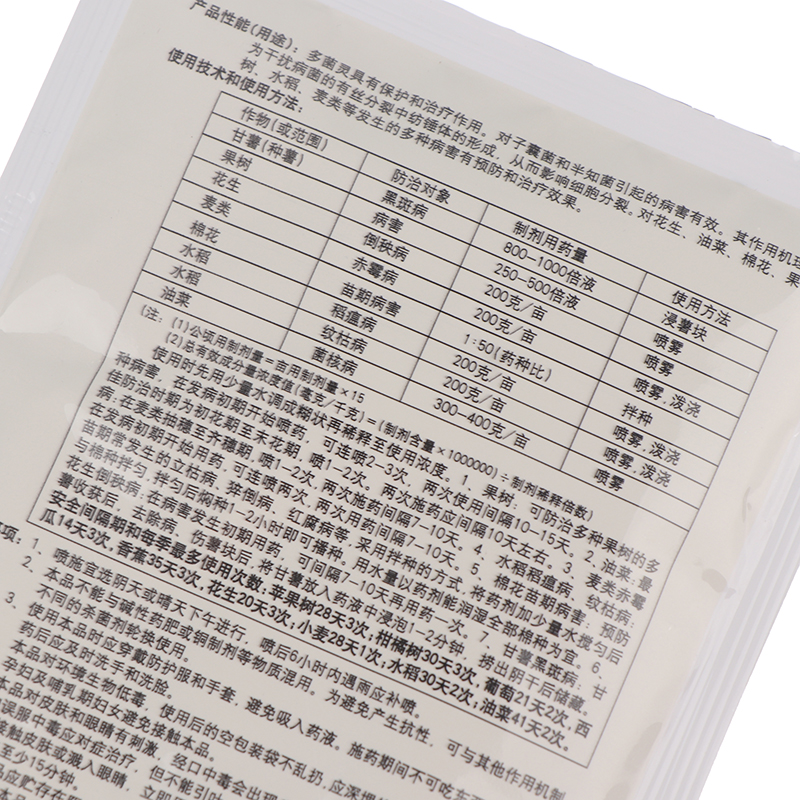 产品性能(用途):多菌灵具有保护和治疗作用。对子囊菌和半知菌引起的病害有效。其作用机理
为干扰病菌的有丝分裂中纺锤体的形成,从而影响细胞分裂。对花生、油菜、棉花、果
树、水稻、麦类等发生的多种病害有预防和治疗效果。
使用技术和使用方法:
作物(或范围) 防治对象 制剂用药量 使用方法
甘薯(种薯) 黑斑病 800-1000倍液 浸薯块
果树 病害 250-500倍液 喷雾
花生 倒秧病 200克/亩 喷雾
麦类 赤霉病 200克/亩 喷雾,泼浇
棉花 苗期病害 1:50(药种比) 拌种
水稻 稻瘟病 200克/亩 喷雾,泼浇
水稻 纹枯病 200克/亩 喷雾,泼浇
油菜 菌核病 300-400克/亩 喷雾
(注:(1)公顷用制剂量=亩用制剂量×15
(2)总有效成分量浓度值(毫克/千克)=(制剂含量×1000000)÷制剂稀释倍数)
使用时先用少量水调成糊状再稀释至使用浓度。1、果树:可防治多种果树的多
种病害,在发病初期开始喷药,可连喷2-3次,两次使用间隔10-15天。2、油菜:最
佳防治时期为初花期至末花期,喷1-2次,两次施药应间隔10天左右。3、麦类赤霉
病:在麦类始穗至齐穗期,喷1-2次,两次施药间隔7-10天。4、水稻稻瘟病、纹枯病:
在发病初期开始用药,可连喷两次,两次用药间隔7-10天。5、棉花苗期病害:预防
苗期常发生的立枯病、猝倒病、红腐病等,采用拌种的方式,将药剂加少量水搅匀后
与棉种拌匀,拌匀后焖种1-2小时即可播种。用水量以药剂能润湿全部棉种为宜。6、
花生倒秧病:在病害发生初期用药,可间隔7-10天再用药一次。7、甘薯黑斑病:甘
薯收获后,去除病、伤薯块后,将甘薯放入药液中浸泡1-2分钟,捞出阴干后储藏。
安全间隔期和每季最多使用次数:苹果树28天3次,柑橘树30天3次,葡萄21天2次,西
瓜14天3次,香蕉35天3次,花生20天3次;小麦28天1次;水稻30天2次;油菜41天2次。
事项:1、喷施宜选阴天或晴天下午进行,喷后6小时内遇雨应补喷。
2、本品不能与碱性药肥或铜制剂等物质混用。为避免产生抗性,可与其他作用机制
不同的杀菌剂轮换使用。
3、使用本品时应穿戴防护服和手套,避免吸入药液。施药期间不可吃东西
药后应及时洗手和洗脸。
本品对环境生物低毒,使用后的空包装袋不乱扔,应深埋
孕妇及哺乳期妇女避免接触本品。
本品对皮肤和眼睛有刺激,经口中毒会出现
误服中毒应对症治疗,但不能引吐
接触皮肤或溅入眼睛,立即用
至少15分钟。
品应贮存在阴